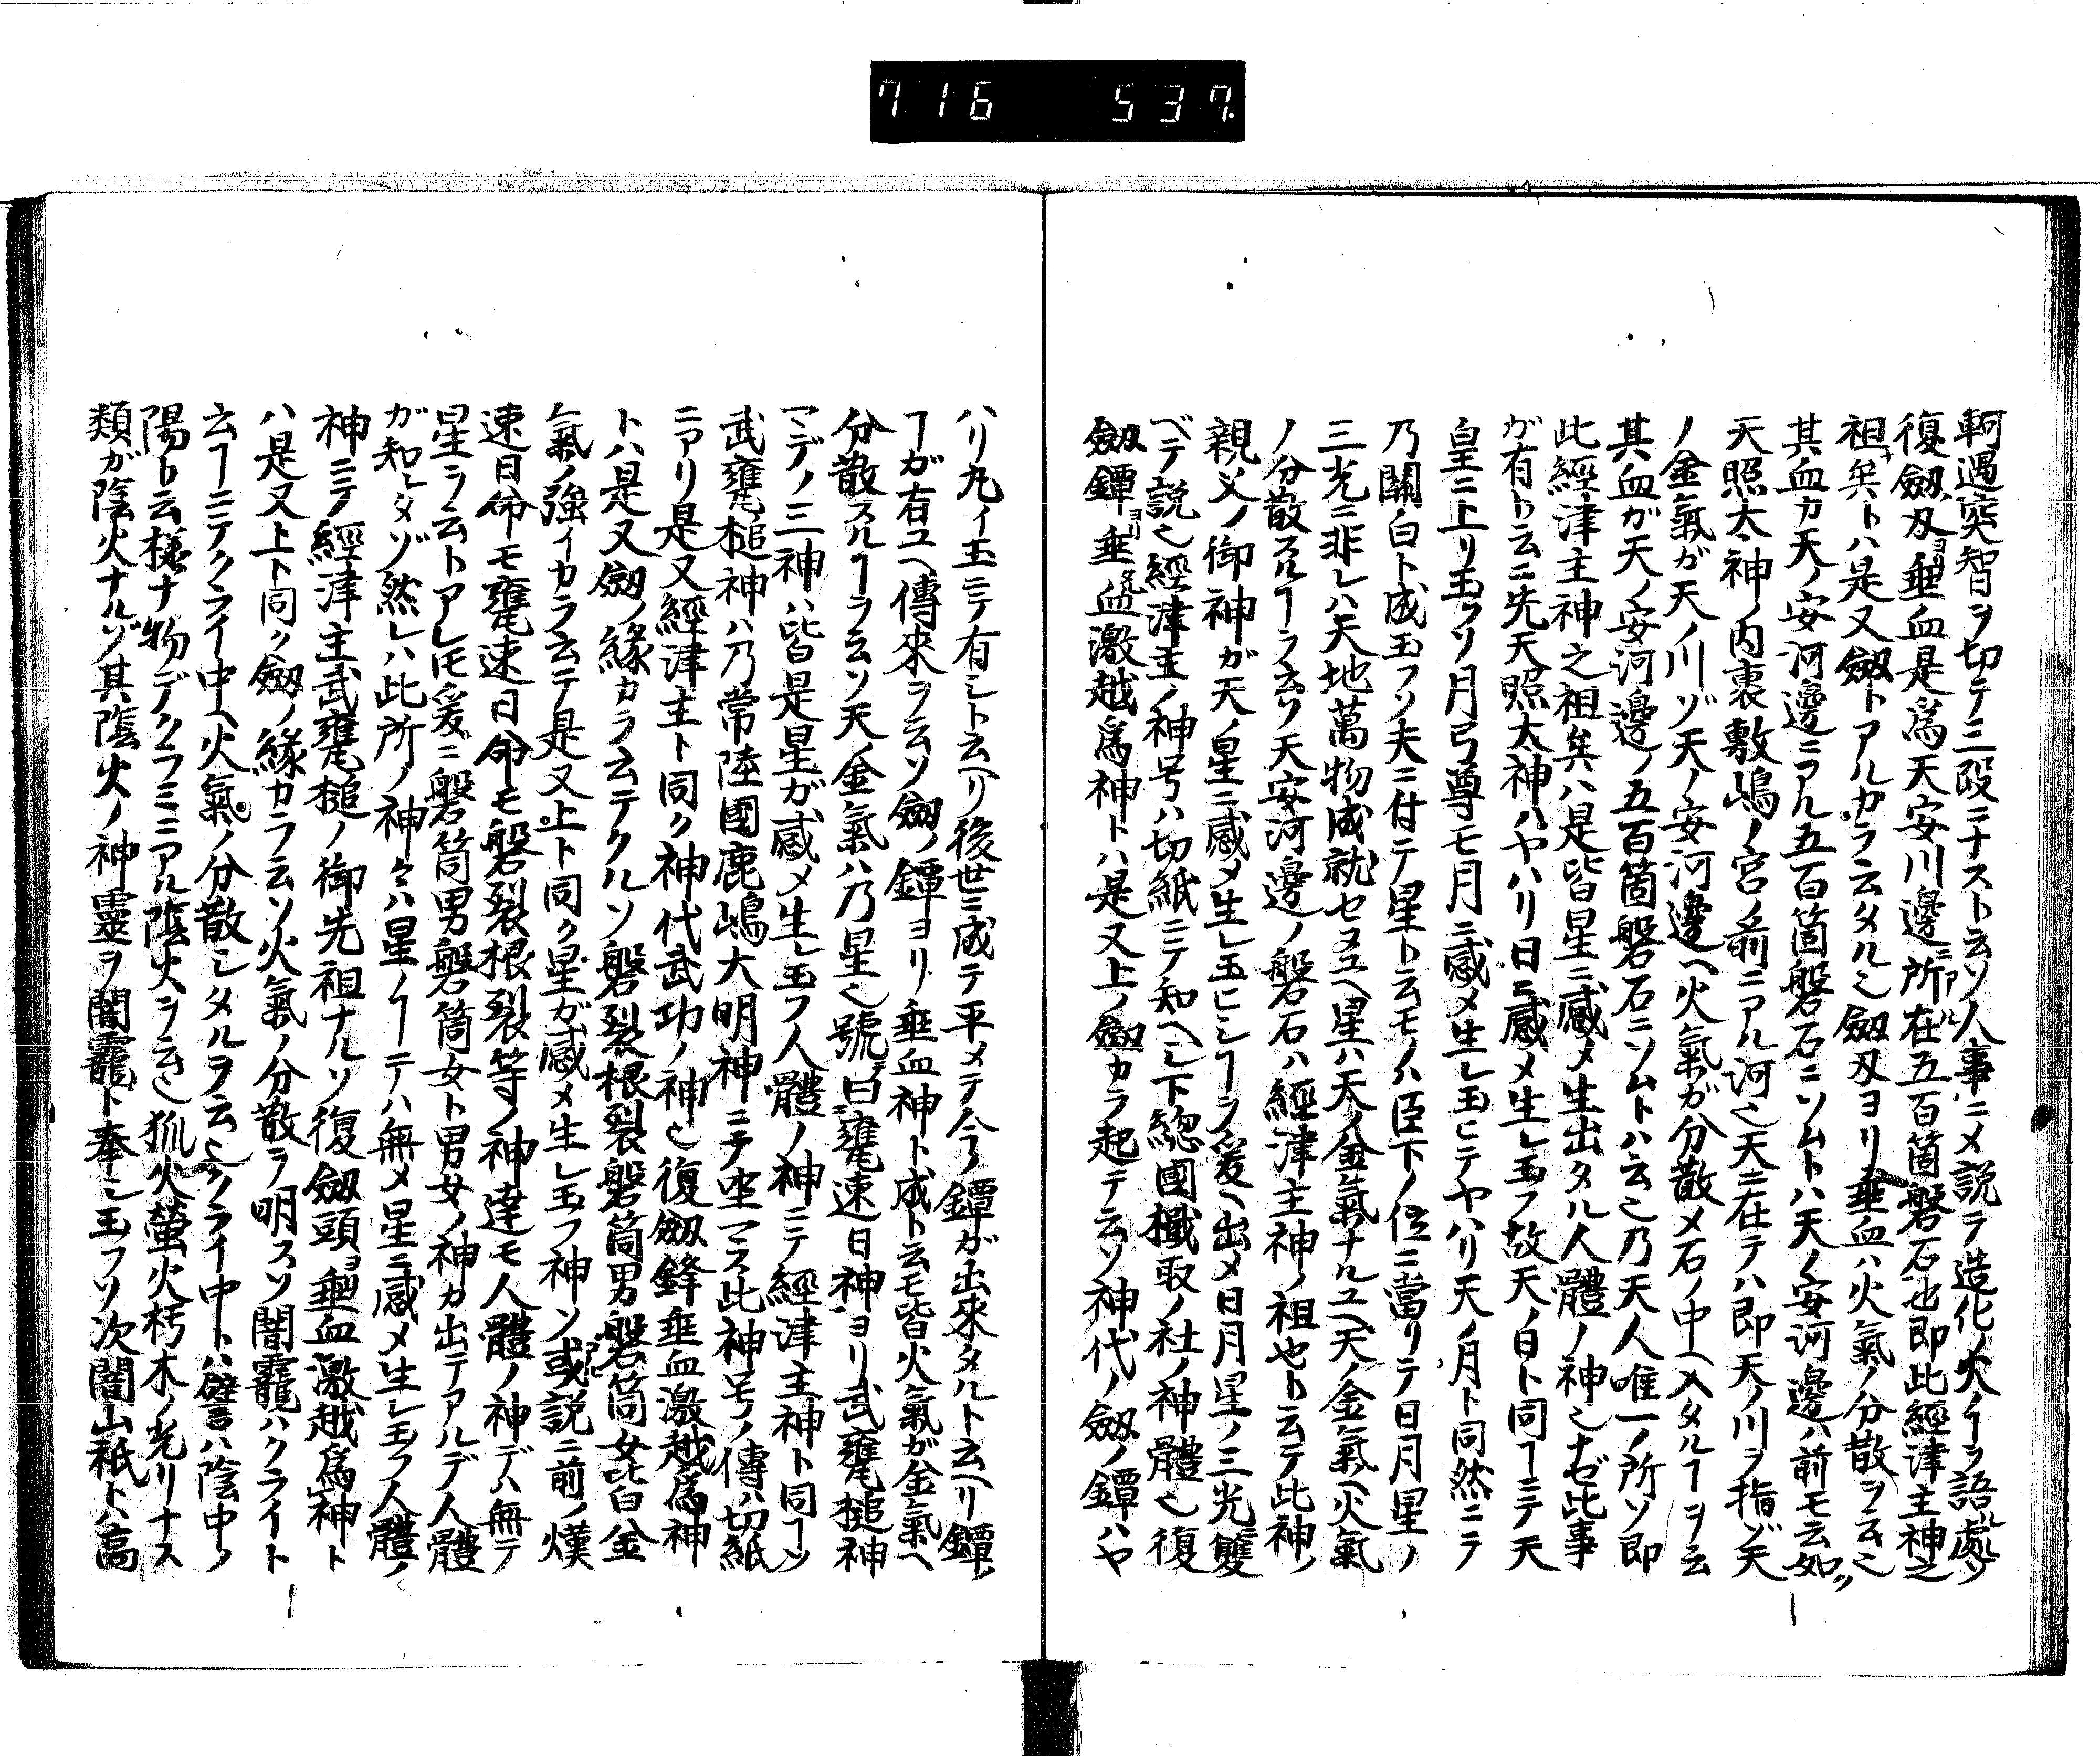 716 537
軻遇突智ヲ切テ三段ニナスト云ソ人事ニメ説テ造化ノ火ノヿヲ語ル處ソ
復劔刃ヨリ垂血是爲天安川邊ニ所在アル五百箇磐石也即此經津主神之
祖矣トハ是又劔トアルカラ云タル也劔刃ヨリ垂血ハ火氣ノ分散ヲ云也
其血カ天ノ安河邊ニアル五百箇磐石ニソムトハ天ノ安河邊ハ前モ云如ク
天照太神ノ内裏敷嶋ノ宮ノ前ニアル河也天ニ在テハ即天ノ川ヲ指ゾ天
ノ金氣ガ天ノ川ゾ天ノ安河邊ヘ火氣ガ分散メ石ノ中ヘ入タルヿヲ云
其血ガ天ノ安河邊ノ五百箇磐石ニソムトハ云也乃天人唯一ノ所ソ即
此經津主神之祖矣ハ是皆星ニ感メ生出タル人體ノ神也ナゼ此事
ガ有ト云ニ先天照大神ハヤハリ日ニ感メ生レ玉フ故天ノ日ト同ヿニテ天
皇ニ上リ玉フソ月弓尊モ月ニ感メ生レ玉ヒテヤハリ天ノ月ト同然ニテ
乃關白ト成玉フソ夫ニ付テ星ト云モノハ臣下ノ位ニ當リテ日月星ノ
三光ニ非レハ天地萬物成就セヌユヘ星ハ天ノ金氣ナルユヘ天ノ金氣ヘ火氣
ノ分散スルヿヲ云ソ天安河邊ノ磐石ハ經津主神ノ祖也ト云テ此神ノ
親父ノ御神ガ天ノ星ニ感メ生レ玉ヒシヿヲ爰ヘ出メ日月星ノ三光雙
ベテ説也經津主ノ神号ハ切紙ニテ知ヘシ下總國檝取ノ社ノ神體也復
劔鐔ヨリ垂血激越爲神トハ是又上ノ劔カラ起テ云ソ神代ノ劔ノ鐔ハヤ
ハリ丸イ玉ニテ有シト云ヘリ後世ニ成テ平メテ今ノ鐔ガ出來タルト云ヘリ鐔ノ
ヿガ有ユヘ傳來ヲ云ソ劔ノ鐔ヨリ垂血神ト成ト云モ皆火氣ガ金氣ヘ
分散スルヿヲ云ソ天ノ金氣ハ乃星也號曰甕速日神ヨリ武甕槌神
マデノ三神ハ皆是星ガ感メ生レ玉フ人體ノ神ニテ經津主神ト同ヿソ
武甕槌神ハ乃常陸國鹿嶋大明神ニテ坐マス此神号ノ傳ハ切紙
ニアリ是又經津主ト同ク神代武功ノ神也復劔鋒垂血激越爲神
トハ是又劔ノ緣カラ云テクルソ磐裂根裂磐筒男磐筒女皆白金
氣ノ強イカラ云テ是又上ト同ク星ガ感メ生レ玉フ神ソ或説ニ前ノ熯
速日命モ甕速日命モ磐裂根裂等ノ神達モ人體ノ神デハ無テ
星ヲ云トアレ𪜈爰ニ磐筒男磐筒女ト男女ノ神カ出テアルデ人體
ガ知レタゾ然レハ此所ノ神々ハ星ノヿテハ無メ星ニ感メ生レ玉フ人體ノ
神ニテ經津主武甕槌ノ御先祖ナルソ復劔頭ヨリ垂血激越爲神ト
ハ是又上ト同ク劔ノ緣カラ云ソ火氣ノ分散ヲ明スソ闇龗ハクライト
云ヿニテクライ中ヘ火氣ノ分散シタルヲ云也クライ中トハ譬ヘハ陰中ノ
陽ト云樣ナ物デクラミニアル陰火ヲ云也狐火螢火朽木ノ光リナス
類ガ陰火ナルゾ其陰火ノ神靈ヲ闇龗ト奉レ玉フソ次闇山祇トハ高